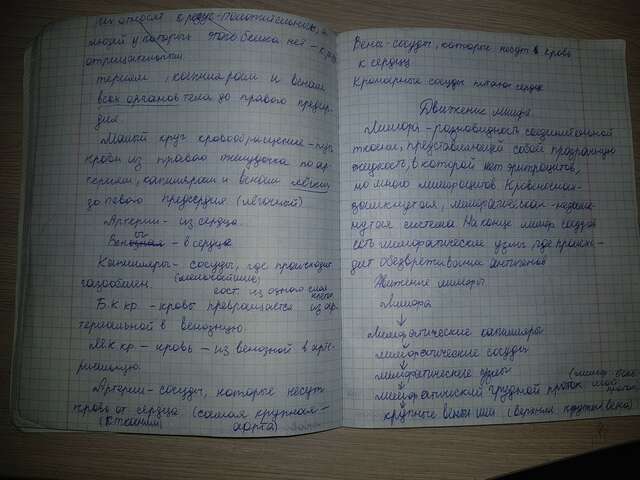 их относя к резус-положительной, а
людей у которых этого белка нет – к рез
отрицательным.
териям, капиллярам и венам
всех органов тела до правого предсер-
дия.
Малый круг кровообращения – путь
крови из правого желудочка по ар-
териям, капиллярам и венам лёгких
до левого предсердия (лёгочный)
Артерии – из сердца.
Вены – в сердце
Капилляры – сосуды, где происходит
газообмен. (мельчайшие)
сост. из одного слоя клеток
Б.к.кр. – кровь превращается из ар-
териальной в венозную.
М.к.кр. – кровь – из венозной в арте-
риальную.
Артерии – сосуды, которые несут
кровь от сердца (самая крупная –
(к тканям) аорта)
Вены – сосуды, которые несут кровь
к сердцу
Коронарные сосуды питают сердце
Движение лимфы
Лимфа – разновидность соединительной
ткани, представляющей собой прозрачную
жидкость, в которой нет эритроцитов,
но много лимфоцитов. Кровеносная –
замкнутая, лимфатическая – незамк-
нутая система. На конце лимф. сосудов
есть лимфатические узлы, где происхо-
дит обезвреживание антигенов
Движение лимфы
Лимфа
↓
Лимфатические капилляры
↓
лимфатические сосуды
↓
лимфатические узлы
↓
лимфатический грудной проток
↓
крупные вены шеи (верхняя полая вена)